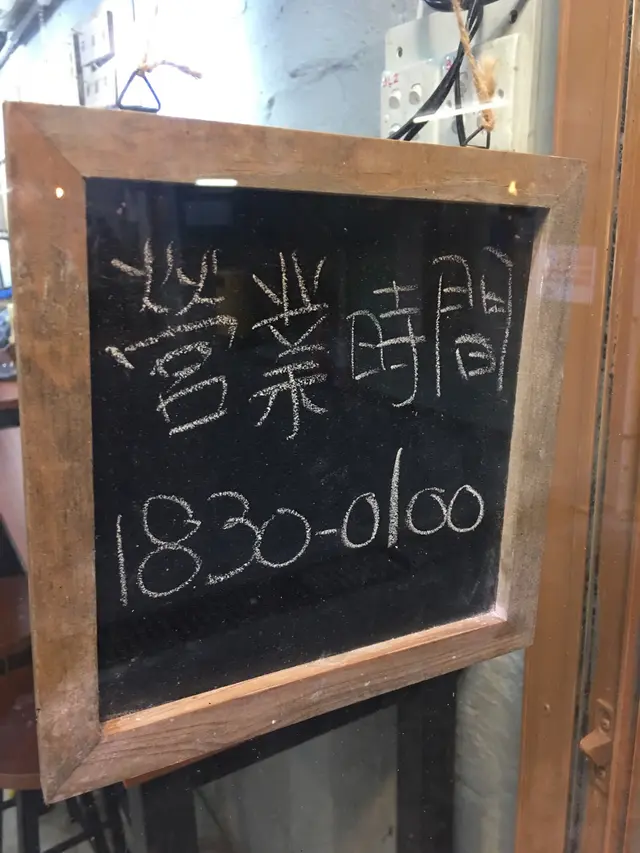 營業時間
1830-0100